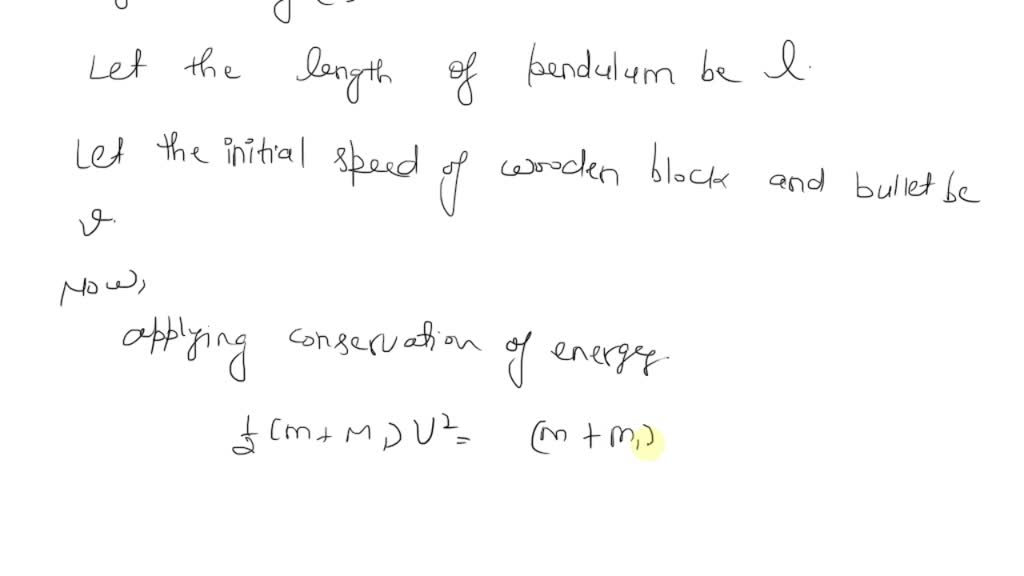 Let the length of pendulum be l.
Let the initial speed of wooden block and bullet be
v.
Now,
applying conservation of energy
½ (m + M₁) V² = (m + m₁)